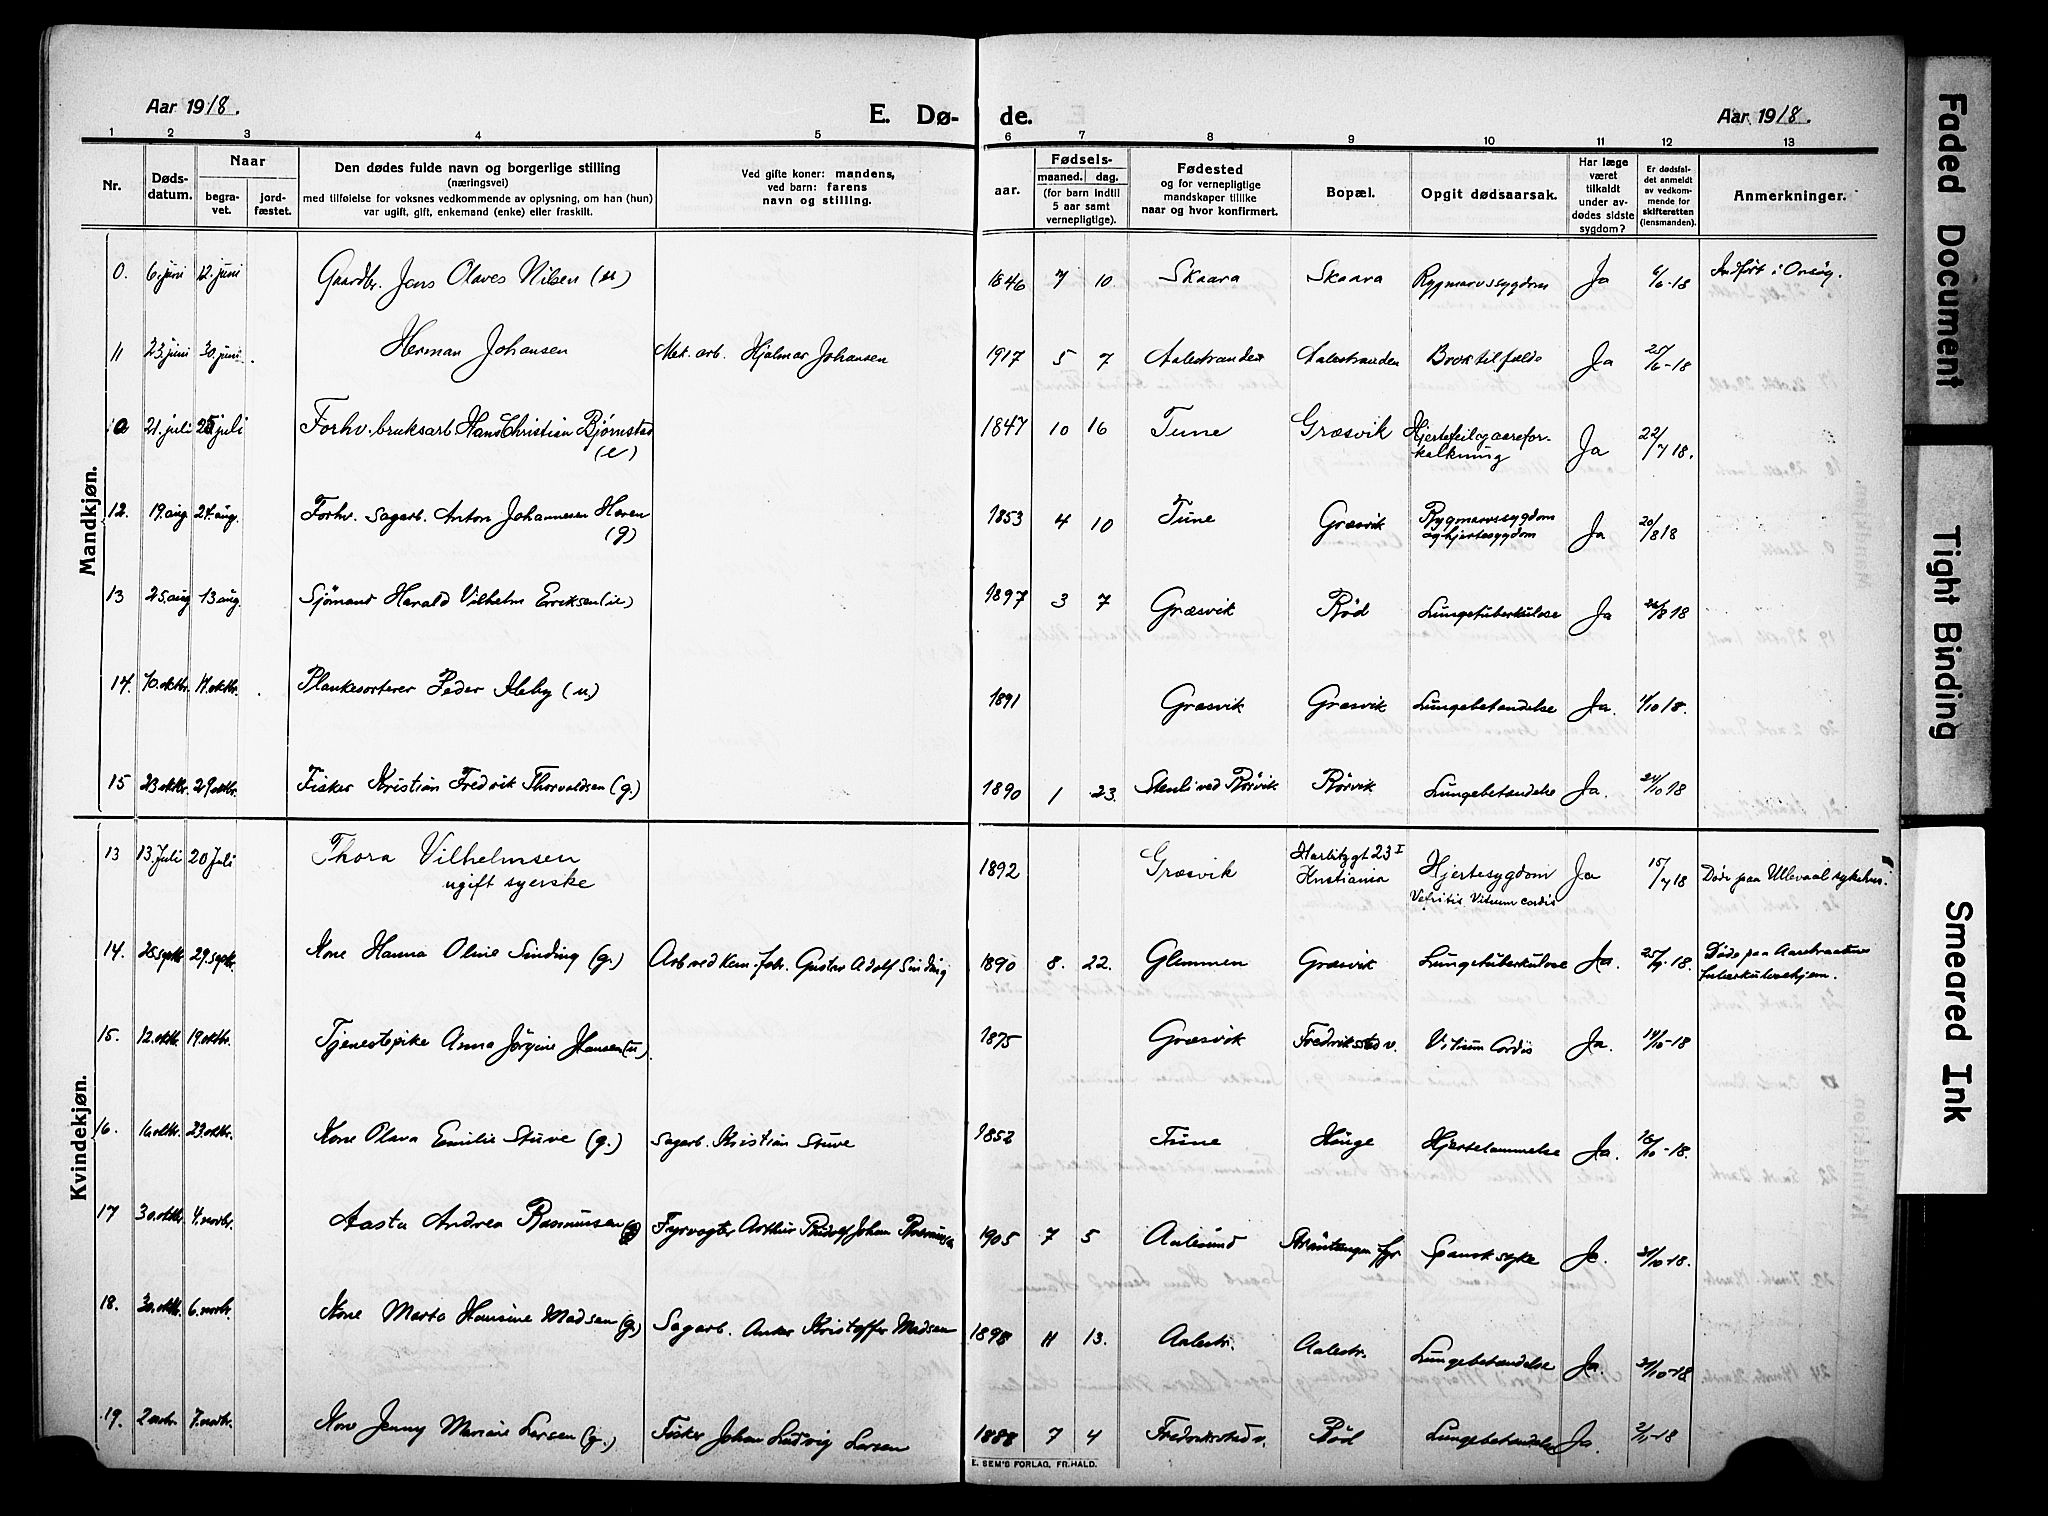 Aar 1918.
E. Dø-
de.
Aar 1918.
1 2 3 4 5 6 7 8 9 10 11 12 13
Nr.
Døds-
datum.
Naar
begra-
vet.
jord-
fæstet.
Den dødes fulde navn og borgerlige stilling
(næringsvei)
med tilføielse for voksnes vedkommende av oplysning, om han (hun)
var ugift, gift, enkemand (enke) eller fraskilt.
Ved gifte koner: mandens,
ved barn: farens
navn og stilling.
Fødsels-
aar.
maaned. dag.
(for barn indtil
5 aar samt
vernepligtige).
Fødested
og for vernepligtige
mandskaper tillike
naar og hvor konfirmert.
Bopæl.
Opgit dødsaarsak.
Har læge
været
tilkaldt
under av-
dødes sidste
sygdom?
Er dødsfal-
det anmeldt
av vedkom-
mende for
skifteretten
(lensmanden).
Anmerkninger.
Mandkjøn.
0. 6. juni 12. juni Gaardbr. Jens Olaves Nilsen (u) 1846 7 10 Skaara Skaara Rygmarvssygdom Ja 6/6-18 Indført i Onsøy.
11 23. juni 30. juni Herman Johansen Mek. arb. Hjalmar Johansen 1917 5 7 Aalestranden Aalestranden Broktilfælde Ja 25/6-18
21. juli juli Forhv. bruksarb Hans Christian Bjørnstad 1847 10 16 Tune Græsvik Hjertefeil og aarefor-
(e) kalkning Ja 22/7 18.
12. 19. aug 24. aug. Forhv. sagarb. Anton Johannesen Haren 1853 4 10 Tune Græsvik Rygmarvssygdom
(g) og hjertesygdom Ja 20/8 18
13 25. aug 13 aug. Sjømand Harald Vilhelm Eriksen (u) 1897 3 7 Græsvik Rød Lungetuberkulose Ja 26/8 18
14. 10. oktbr. 17. oktbr. Plankesorterer Peder Ileby (u.) 1891 Græsvik Græsvik Lungebetændelse Ja. 11/10 18.
15 23 oktbr. 29. oktbr. Fisker Kristian Fredrik Thorvaldsen (g.) 1890 1 23. Stenli ved Rørvik Rørvik Lungebetændelse Ja. 24/10 18
Kvindekjøn.
13 13. Juli 20 Juli Thora Vilhelmsen 1892 Græsvik Harlitzgt 23 I Hjertesygdom Ja 15/7 18 Døde paa Ullevaal sykehus.
ugift syerske Kristiania Vitium cordis
14. 25 septbr. 29. septbr. Kone Hanna Oline Sinding (g.) Arb ved kem. fabr. Gustav Adolf Sinding 1890 8. 22. Glemmen Græsvik Lungetuberkulose Ja. 25/9-18. Døde paa
Tuberkulosehjem.
15. 12. oktbr. 19. oktbr. Tjenestepike Anna Jørgine Hansen (u). 1875 Græsvik Fredriksstad v. Vitium Cordis Ja. 14/10-18
16. 16 oktbr. 23. oktbr. Kone Olava Emilie Stuve (g.) Sagarb. Kristian Stuve 1852 Tune Hauge Hjertelammelse Ja. 18/10-18.
17 30. oktbr. 4. novbr. Aasta Andrea Rasmussen Fyrvogter Arthur Rudolf Johan Rasmussen 1905 7 5 Aalesund Strømtangen fyr Spansk syke Ja. 31/10-18.
18. 30. oktbr. 6. novbr. Kone Marta Hansine Madsen (g.) Sagarb. Anker Kristoffer Madsen 1898 11 13. Aalestr. Aalestr. Lungebetændelse Ja. 31/10-18
19. 2 novbr. 7. novbr. Kone Jenny Marie Larsen (g.) Fisker Johan Ludvig Larsen 1888 7 4 Fredriksstad v. Rød Lungebetændelse Ja. 2/11-18
E. SEM'S FORLAG, FR.HALD.
Faded Document
Tight Binding
Smeared Ink